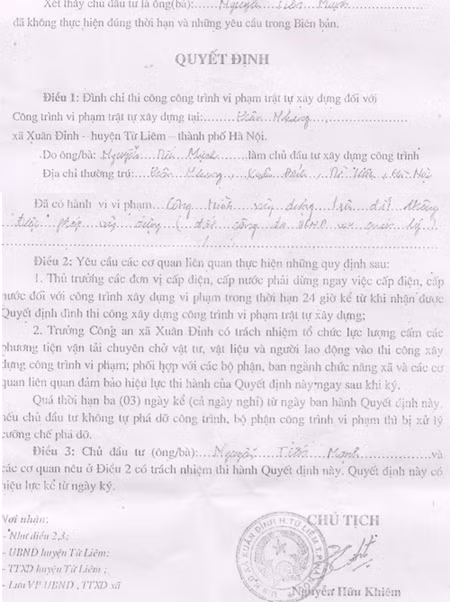 Xét thấy chủ đầu tư là ông(bà): Nguyễn Tiến Mạnh
đã không thực hiện đúng thời hạn và những yêu cầu trong Biên bản.
QUYẾT ĐỊNH
Điều 1: Đình chỉ thi công công trình vi phạm trật tự xây dựng đối với
Công trình vi phạm trật tự xây dựng tại:
xã Xuân Đỉnh – huyện Từ Liêm – thành phố Hà Nội.
Do ông/bà: Nguyễn Tiến Mạnh làm chủ đầu tư xây dựng công trình
Địa chỉ thường trú: Xuân Đỉnh, Từ Liêm, Hà Nội
Đã có hành vi vi phạm Công trình xây dựng trên đất không
được phép xây dựng ( đất công do UBND xã quản lý )
Điều 2: Yêu cầu các cơ quan liên quan thực hiện những quy định sau:
1. Thủ trưởng các đơn vị cấp điện, cấp nước phải dừng ngay việc cấp điện, cấp
nước đối với công trình xây dựng vi phạm trong thời hạn 24 giờ kể từ khi nhận được
Quyết định đình thi công xây dựng công trình vi phạm trật tự xây dựng;
2. Trưởng Công an xã Xuân Đỉnh có trách nhiệm tổ chức lực lượng cấm các
phương tiện vận tải chuyên chở vật tư, vật liệu và người lao động vào thi công xây
dựng công trình vi phạm; phối hợp với các bộ phận, ban ngành chức năng xã và các cơ
quan liên quan đảm bảo hiệu lực thi hành của Quyết định này ngay sau khi ký.
Quá thời hạn ba (03) ngày kể (cả ngày nghỉ) từ ngày ban hành Quyết định này,
nếu chủ đầu tư không tự phá dỡ công trình, bộ phận công trình vi phạm thì bị xử lý
cưỡng chế phá dỡ.
Điều 3: Chủ đầu tư (ông/bà): Nguyễn Tiến Mạnh và
các cơ quan nêu ở Điều 2 có trách nhiệm thi hành Quyết định này. Quyết định này có
hiệu lực kể từ ngày ký.
Nơi nhận:
- Như điều 2,3;
- UBND huyện Từ Liêm;
- TTXD huyện Từ Liêm ;
- Lưu VP UBND , TTXD xã
CHỦ TỊCH
Nguyễn Hữu Khiêm